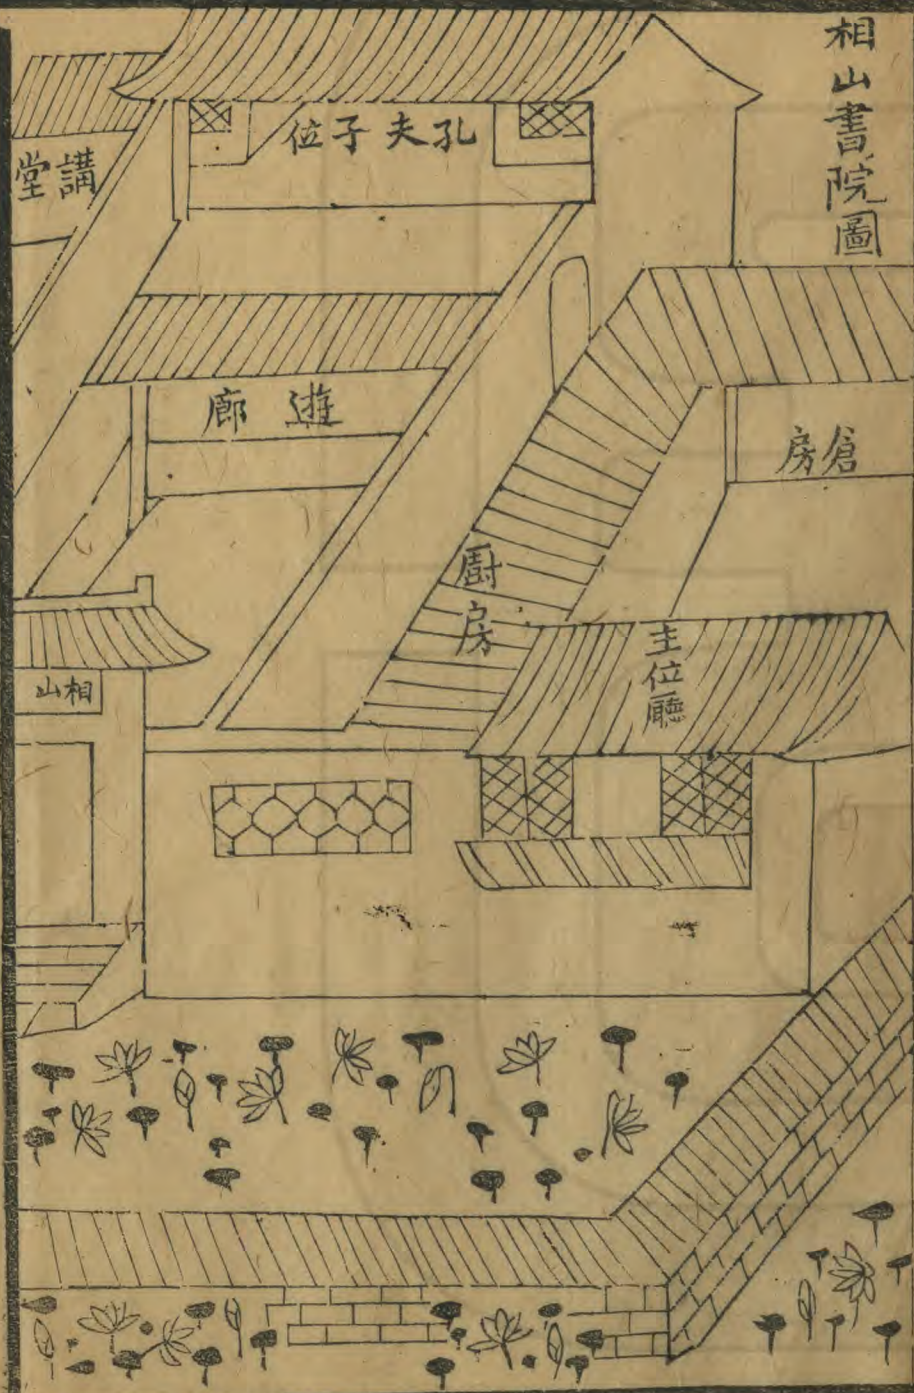 相山書院圖
孔夫子位
講堂
遊廊
倉房
厨房
主位廳
相山